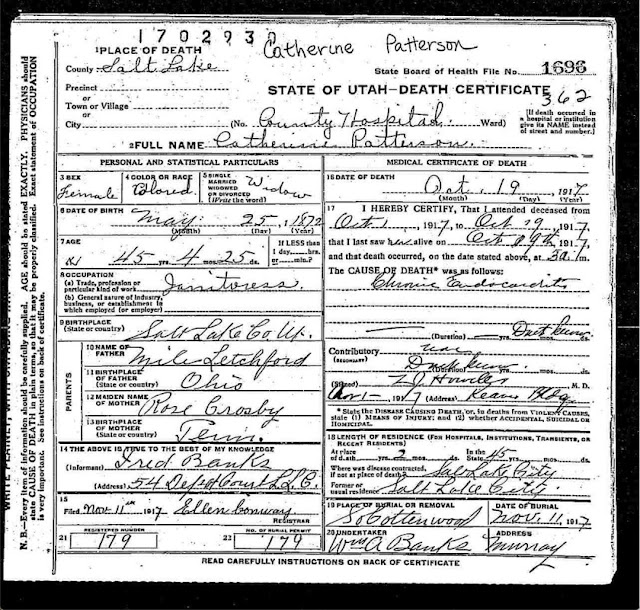 1702930
Catherine Patterson
1 PLACE OF DEATH
County Salt Lake
State Board of Health File No. 1696
Precinct
or
Town or Village
or
City
STATE OF UTAH—DEATH CERTIFICATE
362
(No. County Hospital. Ward)
(If death occurred in a hospital or institution give its NAME instead of street and number.)
2 FULL NAME Catherine Patterson
PERSONAL AND STATISTICAL PARTICULARS
3 SEX
Female
4 COLOR OR RACE
Colored
5 SINGLE MARRIED WIDOWED OR DIVORCED (Write the word)
Widow
6 DATE OF BIRTH
May 25, 1872
(Month) (Day) (Year)
7 AGE
45 yrs. 4 mos. 25 ds.
IF LESS than 1 day,.....hrs. or.....min.?
8 OCCUPATION
(a) Trade, profession or particular kind of work
Janitoress
(b) General nature of industry, business, or establishment in which employed (or employer)
9 BIRTHPLACE
(State or country)
Salt Lake Co Ut.
PARENTS
10 NAME OF FATHER
Letchford
11 BIRTHPLACE OF FATHER
(State or country)
Ohio
12 MAIDEN NAME OF MOTHER
Rose Crosby
13 BIRTHPLACE OF MOTHER
(State or country)
Tenn.
14 THE ABOVE IS TRUE TO THE BEST OF MY KNOWLEDGE
(Informant) Fred Banks
(Address) 54 Depot Court S.L.C.
15
Filed Nov. 11 1917 Ellen Conway
REGISTRAR
21 REGISTERED NUMBER
179
22 NO. OF BURIAL PERMIT
179
MEDICAL CERTIFICATE OF DEATH
16 DATE OF DEATH
Oct. 19 1917
(Month) (Day) (Year)
17 I HEREBY CERTIFY, That I attended deceased from
Oct 1 1917, to Oct 19 1917
that I last saw her alive on Oct 19th 1917,
and that death occurred, on the date stated above, at m.
The CAUSE OF DEATH* was as follows:
Chronic Endocarditis
Dont know
(Duration) yrs. mos. ds.
Contributory
Dont know
(Duration) yrs. mos. ds.
(Signed) M. D.
Nov 1- 1917 (Address) Kearns Bldg
* State the DISEASE CAUSING DEATH, or, in deaths from VIOLENT CAUSES, state (1) MEANS OF INJURY; and (2) whether ACCIDENTAL, SUICIDAL or HOMICIDAL.
18 LENGTH OF RESIDENCE (FOR HOSPITALS, INSTITUTIONS, TRANSIENTS, OR RECENT RESIDENTS)
At place of death yrs. mos. ds. In the State 45 yrs. mos. ds.
Where was disease contracted, if not at place of death? Salt Lake City
Former or usual residence Salt Lake City
19 PLACE OF BURIAL OR REMOVAL
So Cottonwood
DATE OF BURIAL
Nov. 11, 1917
20 UNDERTAKER
Wm A Banks
ADDRESS
Murray
READ CAREFULLY INSTRUCTIONS ON BACK OF CERTIFICATE
N. B.—Every item of information should be carefully supplied. AGE should be stated EXACTLY. PHYSICIANS should
state CAUSE OF DEATH in plain terms, so that it may be properly classified. Exact statement of OCCUPATION
is very important. See instructions on back of certificate.